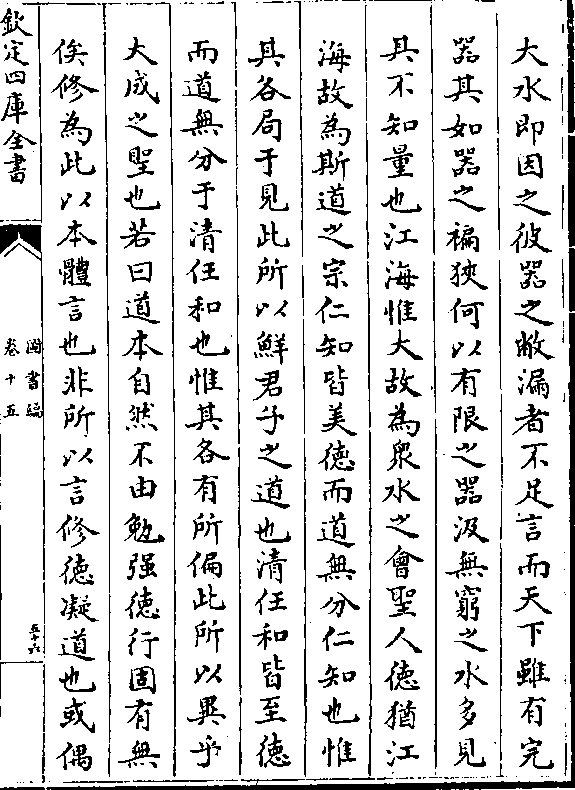 大水即因之彼器之敝漏者不足言而天下雖有完
器其如器之褊狹何以有限之器汲無窮之水多見
其不知量也江海惟大故為衆水之會聖人德猶江
海故為斯道之宗仁知皆美德而道無分仁知也惟
其各局于見此所以鮮君子之道也清任和皆至德
而道無分于清任和也惟其各有所偏此所以異乎
大成之聖也若曰道本自然不由勉强德行固有無
俟修為此以本體言也非所以言修德凝道也或偶
欽定四庫全書
圖書編
卷十五
五十六